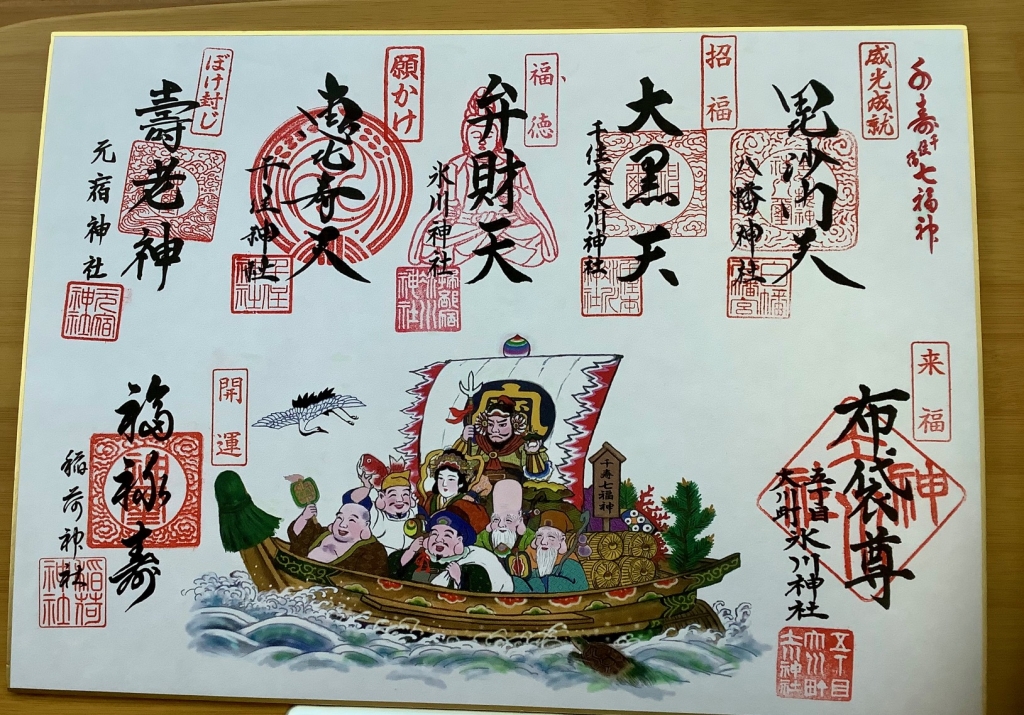 千寿
七福神
威光成就
毘沙門天
八幡神社
招福
大黒天
千住本氷川神社
福徳
弁財天
氷川神社
願かけ
恵比寿天
千住神社
千住神社
ぼけ封じ
壽老神
元宿神社
元宿神社
来福
布袋尊
五丁目
大川町氷川神社
千寿七福神
開運
福禄寿
稲荷神社
稲荷神社